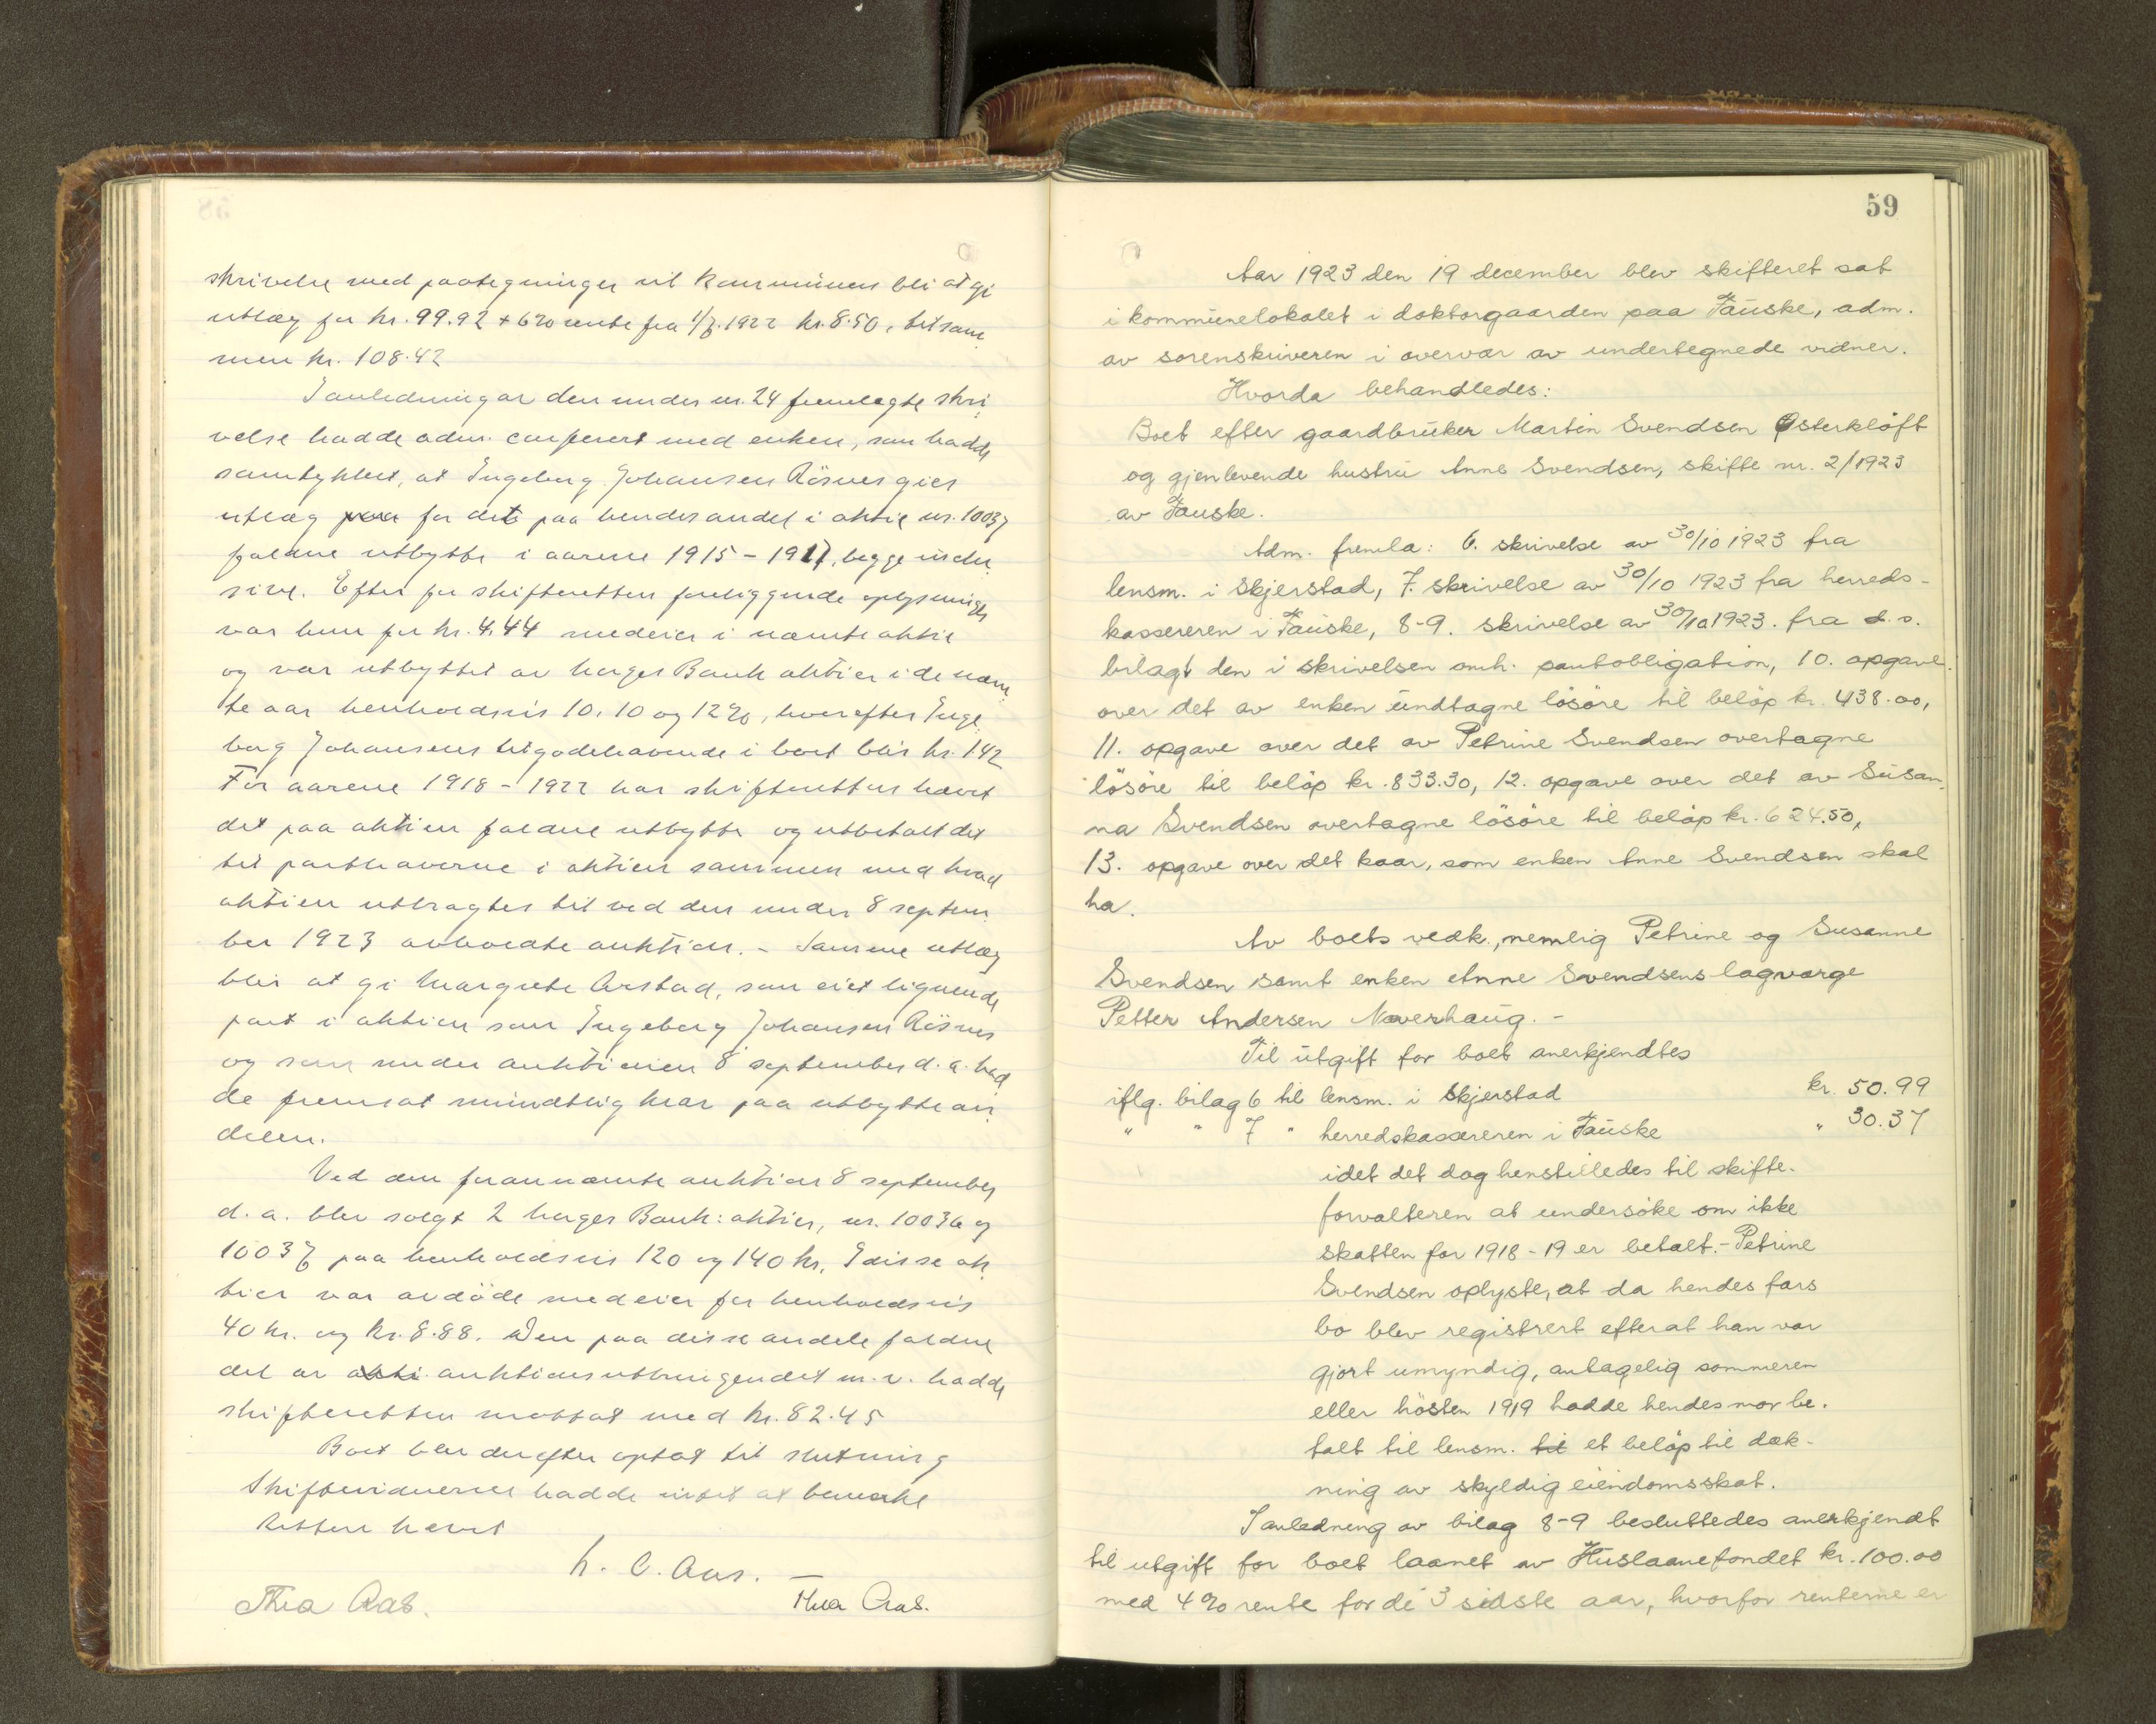 skrivelse med paategninger vil kommunen bli at gi
utlæg for kr. 99.92 + 6% rente fra 1/7.1922 kr. 8.50, tilsam
men kr. 108.42
I anledning av den under nr. 24 fremlagte skri
velse hadde adm. conferert med enken, som hadde
samtykket, at Ingeborg Johansen Røsnes gies
utlæg for det paa hendes andel i aktie nr. 10037
faldne utbytte i aarene 1915 - 1917, begge inclu
sive. Efter for skifteretten foreliggende oplysninger
var hun for kr. 4,44 medeier i nævnte aktie
og var utbyttet av Norges Bank aktier i de nævn
te aar henholdsvis 10, 10 og 12%, hvorefter Inge
borg Johansens tilgodehavende i boet blir kr. 142
For aarene 1918 - 1922 har skifteretten hævet
det paa aktien faldne utbytte og utbetalt det
til parthaverne i aktien sammen med hvad
aktien utbragtes til ved den under 8 septem
ber 1923 avholdte auktion. - Samme utlæg
blir at gi Margrete Arstad, som eiet lignende
part i aktien som Ingeborg Johansen Røsnes
og som under auktionen 8 september d.a. had
de fremsat mundtlig krav paa utbyttean
delen.
Ved den forannævnte auktion 8 september
d.a. blev solgt 2 Norges Bank: aktier, nr. 10036 og
10037 paa henholdsvis 120 og 140 kr. I disse ak
tier var avdöde medeier for henholdsvis
40 kr. og kr. 8.88. Den paa disse andele faldne
del av akti auktionsutbringendet m.v. hadde
skifteretten mottat med kr. 82.45
Boet blev derefter optat til slutning
Skiftevidnerne hadde intet at bemerke
Retten hævet
Thea Aas. Thea Aas.
59
Aar 1923 den 19 december blev skifteret sat
i kommunelokalet i doktorgaarden paa Fauske, adm.
av sorenskriveren i overvær av undertegnede vidner.
Hvorda behandledes:
Boet efter gaardbruker Martin Svendsen Østerklöft
og gjenlevende hustru Anne Svendsen, skifte nr. 2/1923
av Fauske.
Adm. fremla: 6. skrivelse av 30/10 1923 fra
lensm. i Skjerstad, 7. skrivelse av 30/10 1923 fra herreds-
kassereren i Fauske, 8-9. skrivelse av 30/10 1923. fra d.s.
bilagt den i skrivelsen omh. pantobligation, 10. opgave
over det av enken undtagne lösöre til belöp kr. 438.00,
11. opgave over det av Petrine Svendsen overtagne
lösöre til belöp kr. 833.30, 12. opgave over det av Susan
na Svendsen overtagne lösöre til belöp kr. 624.50,
13. opgave over det kaar, som enken Anne Svendsen skal
ha.
Av boets vedk., nemlig Petrine og Susanne
Svendsen samt enken Anne Svendsens lagværge
Petter Andersen Naverhaug. -
Til utgift for boet anerkjendtes
iflg. bilag 6 til lensm. i Skjerstad kr. 50.99
" " 7 " herredskassereren i Fauske " 30.37
idet det dog henstilledes til skifte-
forvalteren at undersöke om ikke
skatten for 1918 - 19 er betalt. - Petrine
Svendsen oplyste, at da hendes fars
bo blev registrert efterat han var
gjort umyndig, antagelig sommeren
eller hösten 1919 hadde hendes mor be-
talt til lensm. til et belöp til dæk-
ning av skyldig eiendomsskat.
I anledning av bilag 8-9 besluttedes anerkjendt
til utgift for boet laanet av Huslaanefondet kr. 100.00
med 4% rente for de 3 sidste aar, hvorfor renterne er